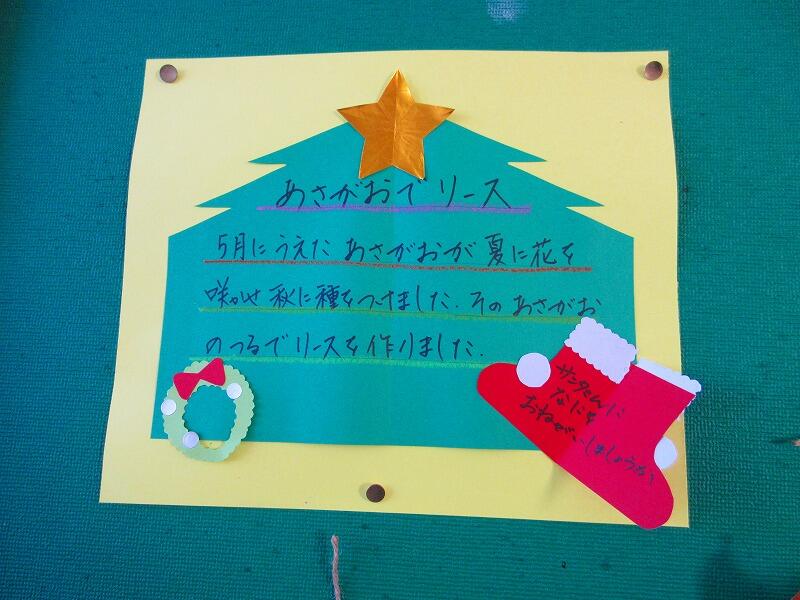 あさがおでリース
5月にうえたあさがおが夏に花を
咲かせ秋に種をつけました.そのあさがお
のつるでリースを作りました.
サンタさんに
なにを
おねがいしましょうか?